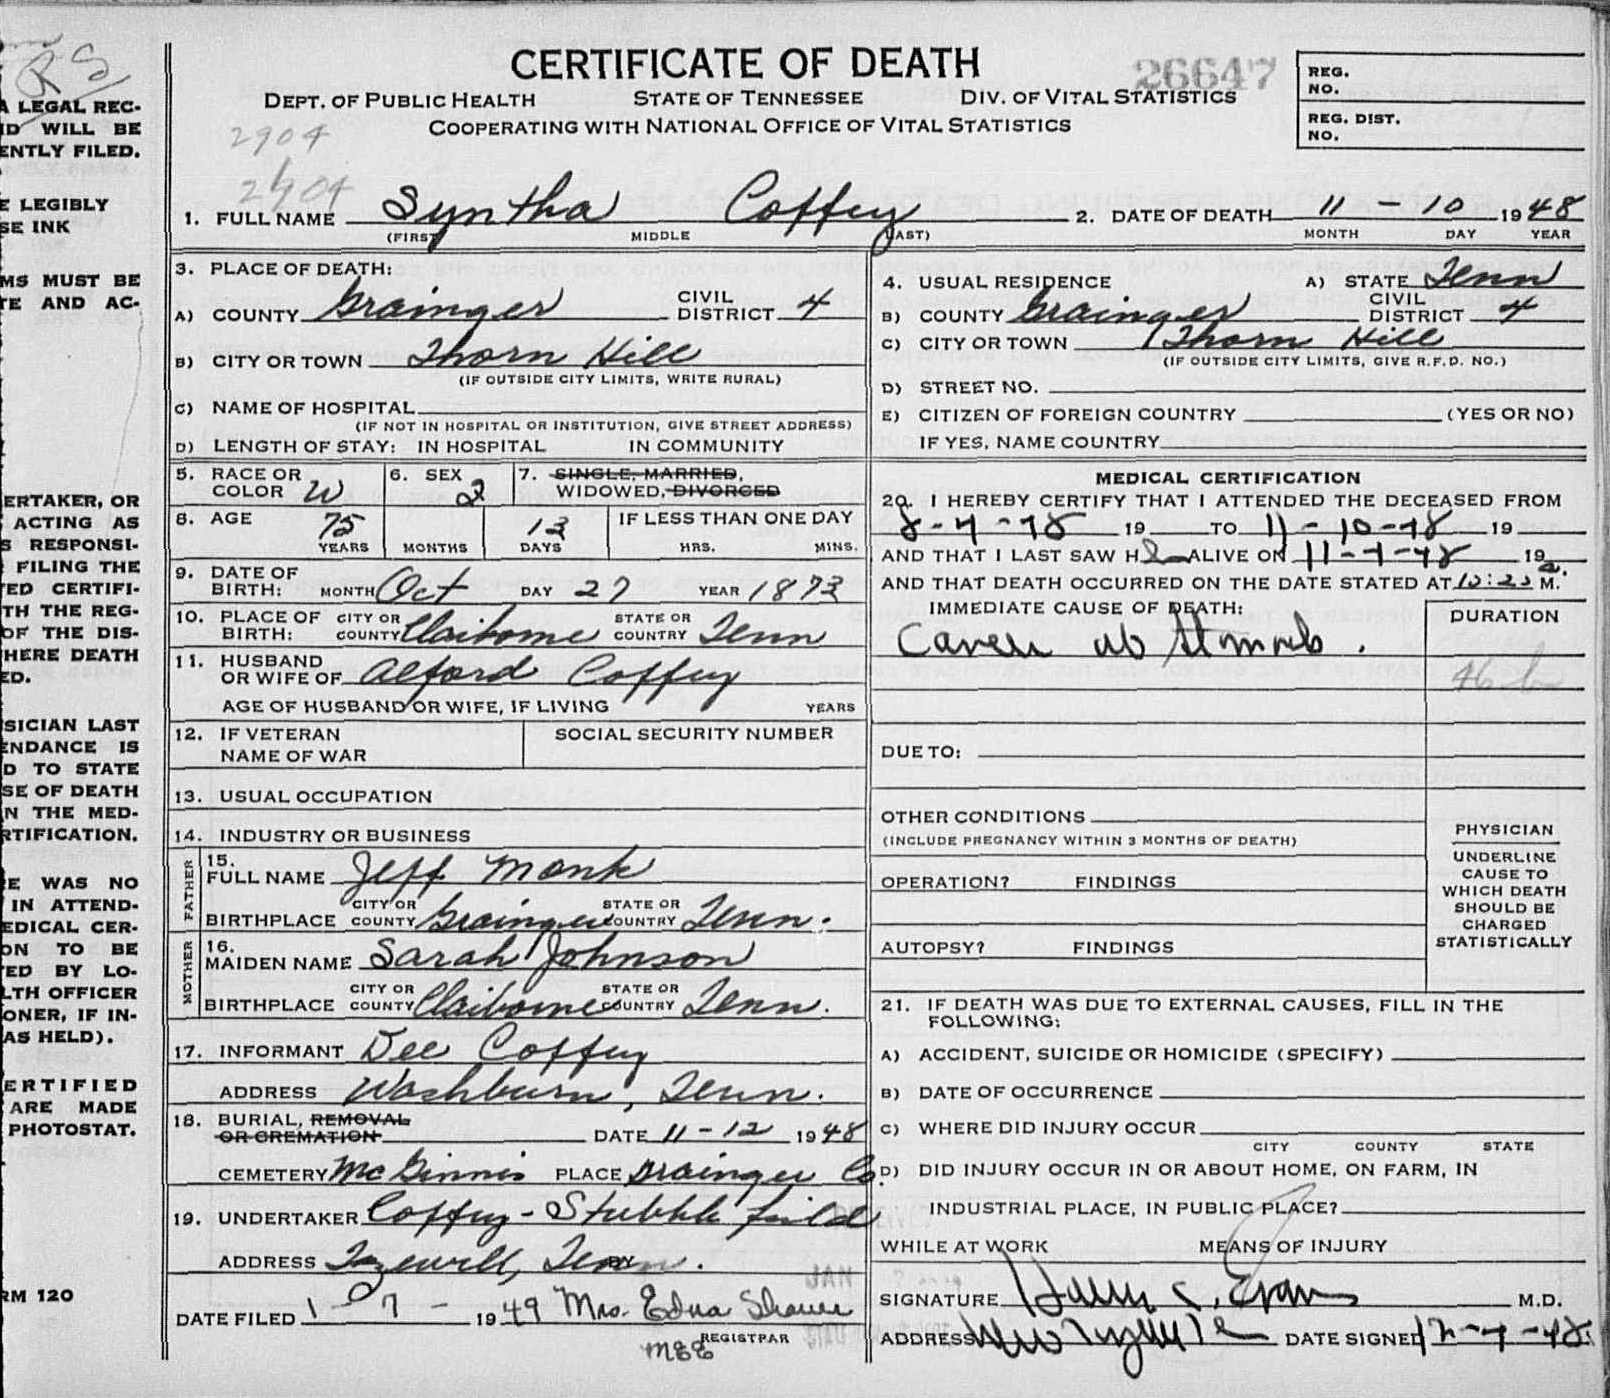 CERTIFICATE OF DEATH
26647
REG. NO.
DEPT. OF PUBLIC HEALTH STATE OF TENNESSEE DIV. OF VITAL STATISTICS
COOPERATING WITH NATIONAL OFFICE OF VITAL STATISTICS
REG. DIST. NO.
2904
2904
1. FULL NAME Syntha Coffey 2. DATE OF DEATH 11 - 10 1948
(FIRST) MIDDLE (LAST) MONTH DAY YEAR
3. PLACE OF DEATH:
A) COUNTY Grainger CIVIL DISTRICT 4
B) CITY OR TOWN Thorn Hill
(IF OUTSIDE CITY LIMITS, WRITE RURAL)
C) NAME OF HOSPITAL
(IF NOT IN HOSPITAL OR INSTITUTION, GIVE STREET ADDRESS)
D) LENGTH OF STAY: IN HOSPITAL IN COMMUNITY
4. USUAL RESIDENCE A) STATE Tenn
B) COUNTY Grainger CIVIL DISTRICT 4
C) CITY OR TOWN Thorn Hill
(IF OUTSIDE CITY LIMITS, GIVE R.F.D. NO.)
D) STREET NO.
E) CITIZEN OF FOREIGN COUNTRY (YES OR NO)
IF YES, NAME COUNTRY
5. RACE OR COLOR W 6. SEX 2 7. SINGLE, MARRIED, WIDOWED, DIVORCED
8. AGE 75 13 IF LESS THAN ONE DAY
YEARS MONTHS DAYS HRS. MINS.
9. DATE OF BIRTH: MONTH Oct DAY 27 YEAR 1873
10. PLACE OF BIRTH: CITY OR COUNTY Claiborne STATE OR COUNTRY Tenn
11. HUSBAND OR WIFE OF Alford Coffey
AGE OF HUSBAND OR WIFE, IF LIVING YEARS
12. IF VETERAN NAME OF WAR SOCIAL SECURITY NUMBER
13. USUAL OCCUPATION
14. INDUSTRY OR BUSINESS
FATHER
15. FULL NAME Jeff Monk
BIRTHPLACE CITY OR COUNTY Grainger STATE OR COUNTRY Tenn.
MOTHER
16. MAIDEN NAME Sarah Johnson
BIRTHPLACE CITY OR COUNTY Claiborne STATE OR COUNTRY Tenn.
17. INFORMANT Dee Coffey
ADDRESS Washburn, Tenn.
18. BURIAL, REMOVAL OR CREMATION DATE 11-12 1948
CEMETERY McGinnis PLACE Grainger Co.
19. UNDERTAKER Coffey - Stubblefield
ADDRESS Tazewell, Tenn.
DATE FILED 1 - 7 - 1949 Mrs. Edna
REGISTRAR
MEE
MEDICAL CERTIFICATION
20. I HEREBY CERTIFY THAT I ATTENDED THE DECEASED FROM
8-4-48 19 TO 11-10-48 19
AND THAT I LAST SAW H ALIVE ON 19
AND THAT DEATH OCCURRED ON THE DATE STATED AT M.
IMMEDIATE CAUSE OF DEATH: DURATION
46 b
DUE TO:
OTHER CONDITIONS
(INCLUDE PREGNANCY WITHIN 3 MONTHS OF DEATH)
OPERATION? FINDINGS
AUTOPSY? FINDINGS
PHYSICIAN
UNDERLINE
CAUSE TO
WHICH DEATH
SHOULD BE
CHARGED
STATISTICALLY
21. IF DEATH WAS DUE TO EXTERNAL CAUSES, FILL IN THE
FOLLOWING:
A) ACCIDENT, SUICIDE OR HOMICIDE (SPECIFY)
B) DATE OF OCCURRENCE
C) WHERE DID INJURY OCCUR
CITY COUNTY STATE
D) DID INJURY OCCUR IN OR ABOUT HOME, ON FARM, IN
INDUSTRIAL PLACE, IN PUBLIC PLACE?
WHILE AT WORK MEANS OF INJURY
SIGNATURE Evans M.D.
ADDRESS New DATE SIGNED
A LEGAL REC-
D WILL BE
ENTLY FILED.
E LEGIBLY
SE INK
MS MUST BE
TE AND AC-
ERTAKER, OR
ACTING AS
S RESPONSI-
FILING THE
ED CERTIFI-
TH THE REG-
OF THE DIS-
HERE DEATH
ED.
SICIAN LAST
ENDANCE IS
D TO STATE
SE OF DEATH
N THE MED-
RTIFICATION.
E WAS NO
IN ATTEND-
EDICAL CER-
ON TO BE
ED BY LO-
LTH OFFICER
ONER, IF IN-
AS HELD).
ERTIFIED
ARE MADE
PHOTOSTAT.
RM 120